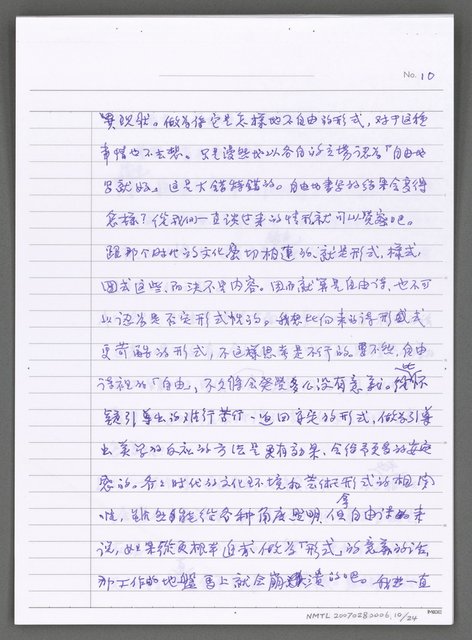 No. 10
實現狀。做為保它是怎樣地不自由的形式，對于這種
事情也不去想。只是漫然地以各自的立場認為「自由地
寫就好。這是大錯特錯的。自由地書寫的結果會變得
怎樣？從我們一直談過來的情形就可以覺察吧。
跟那个時代的文化密切相連的，就是形式，樣式，
圖式這些，而決不是內容。因而就算是自由詩，也不可
以認為是否定形式性的。我想比向來的詩形感式
更苛酷的形式，不這樣思考是不行的。要不然，自由
詩裡的「自由」，不久將會變覺多么沒有意義。些
鏡引導出的難行苦行，返回主定的形式，做為引導
出美學的反應的方法是更有効果，會給予更多的安定
感的。各个時代的文化環境和芸術形式的相関
性，雖然多能從各種角度照明，但拿自由詩的來
說，如果從更根本追求做為「形式」的意義的話，
那工作的地盤馬上就会崩潰的吧。我想一直
NMTL 20070280006, 10/24